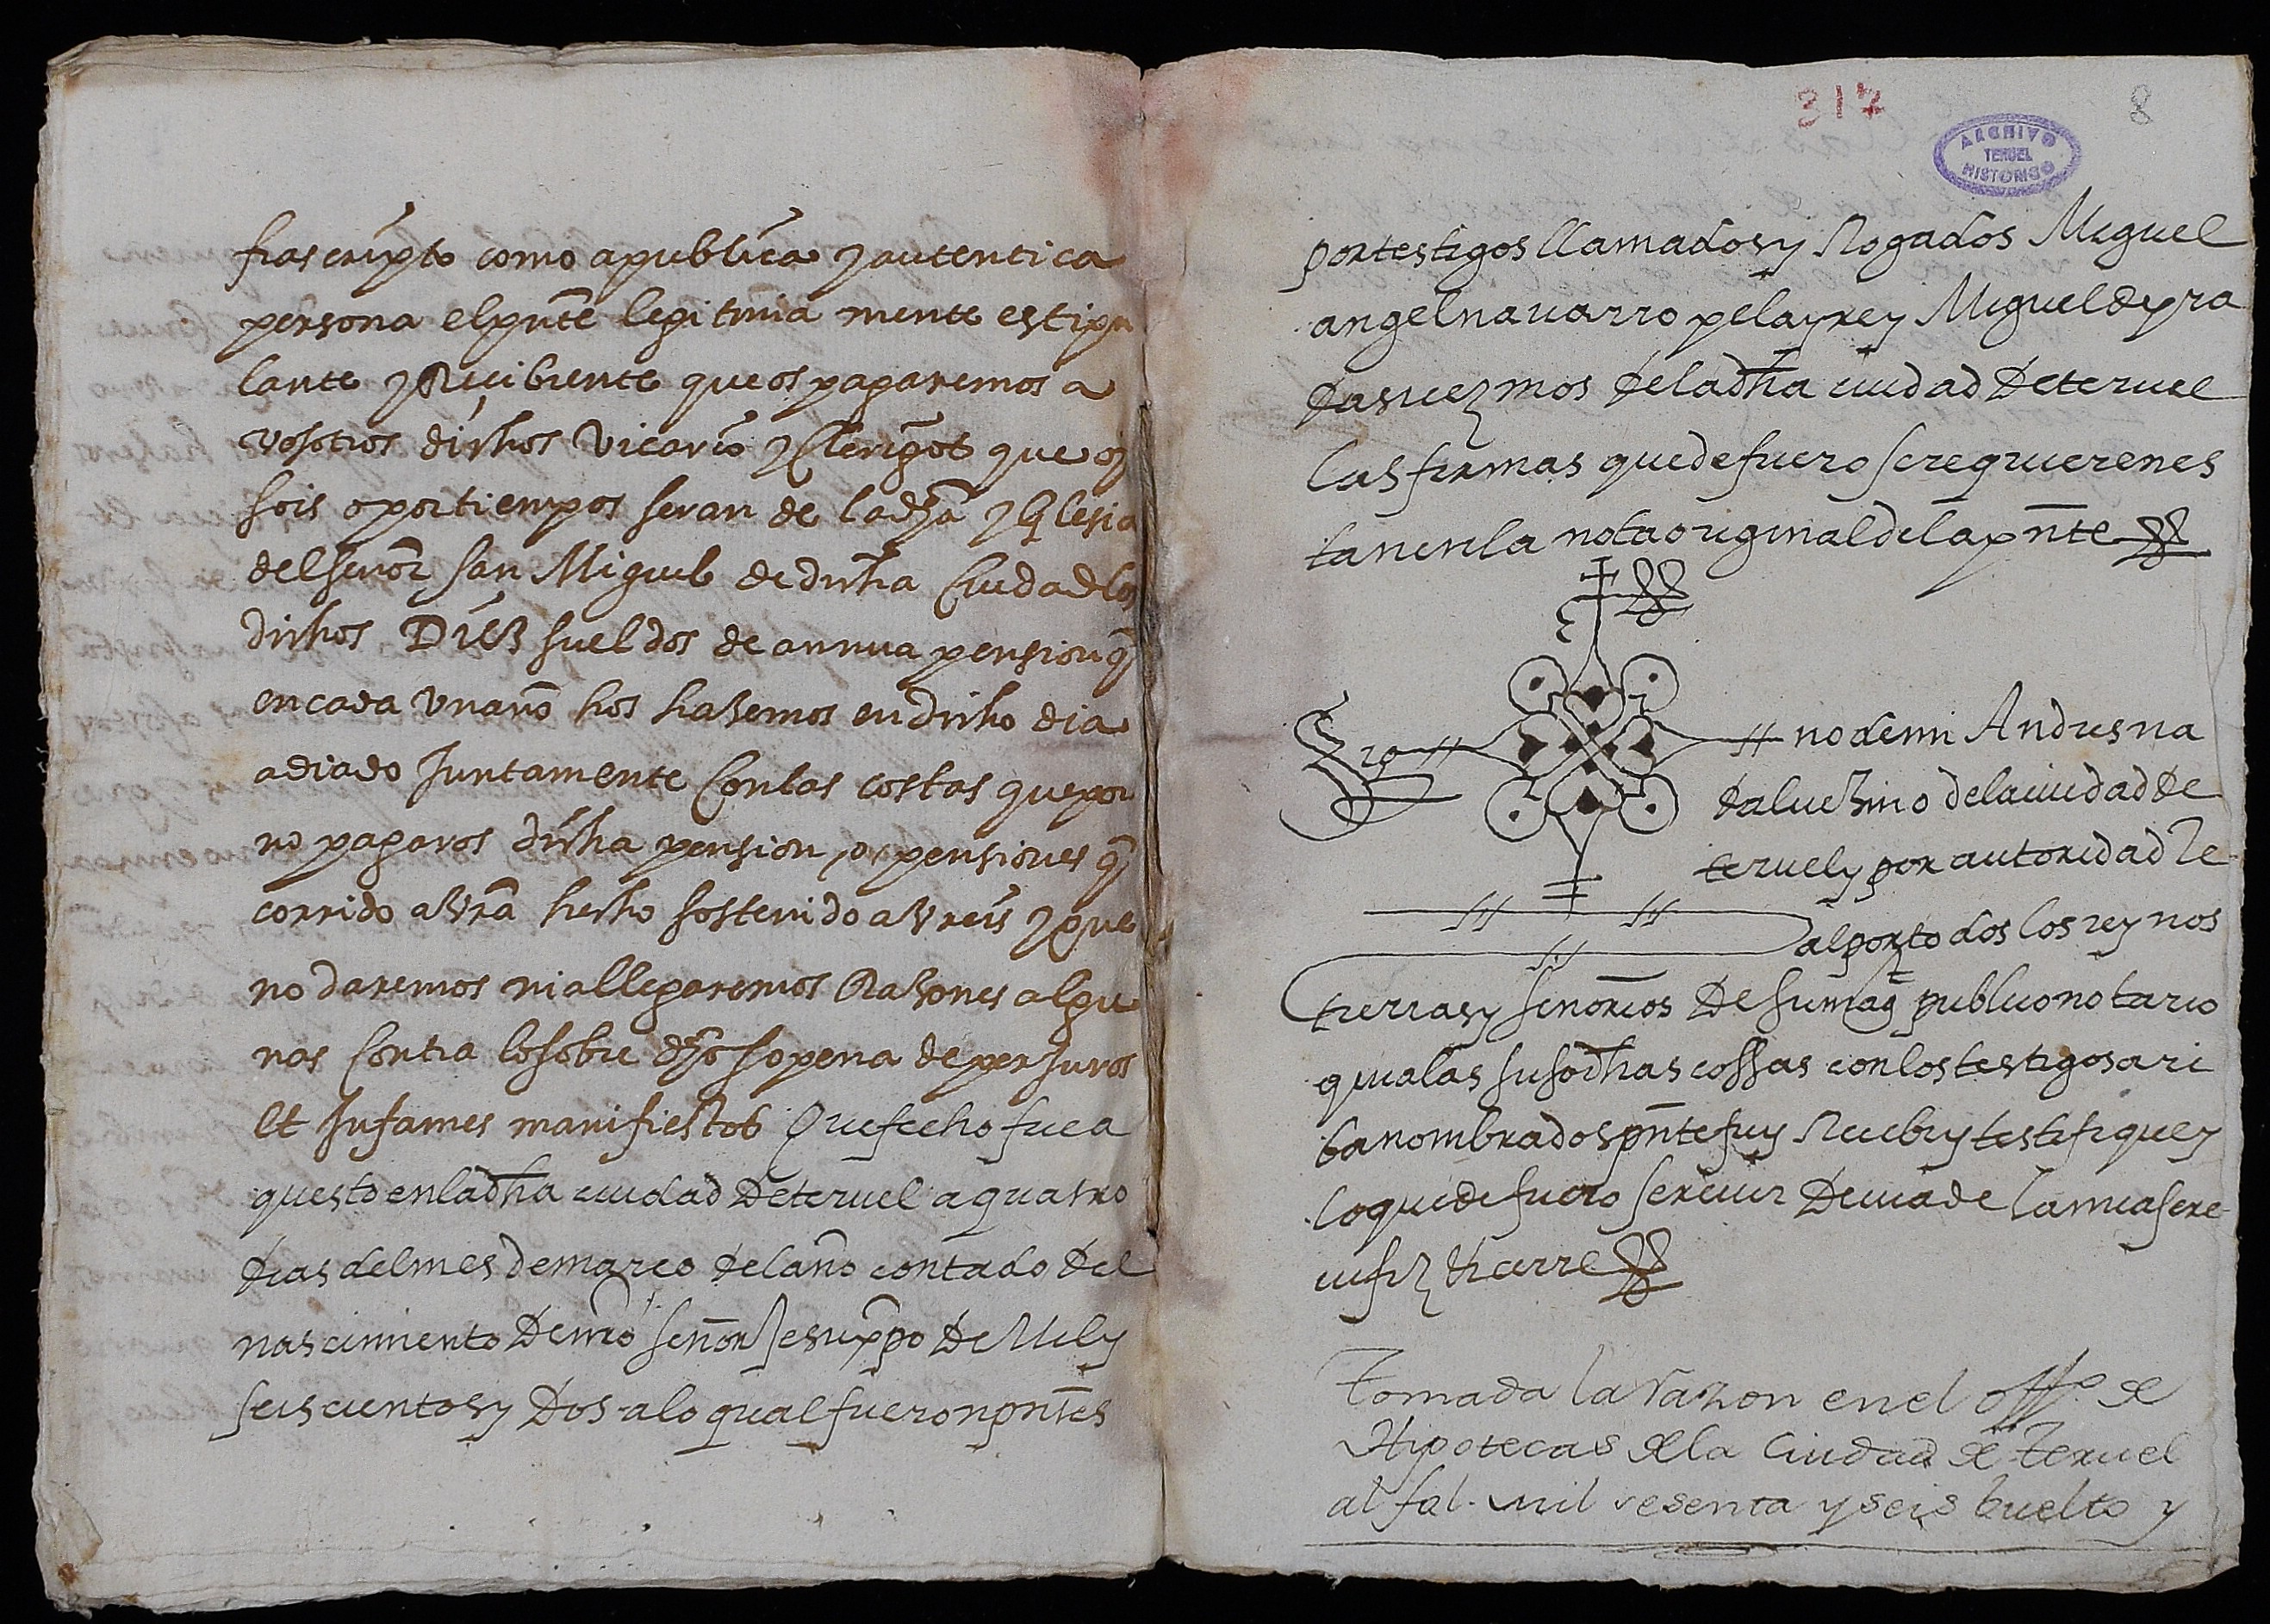 frascripto como apublica y autentica
persona el pnte legitima mente estipu
lante y Recibiente que os pagaremos a
vosotros dichos Vicario y Clerigos que oy
sois o por tiempos seran de la dha yglesia
del señor san Miguel de dicha Ciudad los
dichos Diez sueldos de annua pension q
en cada un año hos hazemos en dicho dia
adiado Juntamente Con las costas que por
no pagaros dicha pension, o, pensiones q
corrido avra hecho sostenido avreis y que
no daremos ni allegaremos Razones algu
nas Contra lo sobre dho so pena de perJuros
et Infames manifiestos Que fecho fue a
questo en la dha ciudad de teruel a quatro
dias del mes de março del año contado del
nascimiento de nro señor Jesuxpo de Mil y
seiscientos y Dos a lo qual fueron pntes
317 8
ARCHIVO
TERUEL
HISTORICO
por testigos llamados y Rogados Miguel
angel nauarro pelayre y Miguel de
vezinos de la dha ciudad de teruel
las firmas que de fuero se requieren es
tan en la nota original de la pnte
Sig no de mi Andres na
vezino de la ciudad de
teruel y por autoridad Re
al por todos los reynos
tierras y señorios de su mag publico notario
qui a las susodhas cossas con los testigos ari
ba nombrados pnte fuy Recibi y testifique y
lo que de fuero screuir deuia de la mia scre
ui fiz et cerre
Tomada la razon en el offo. de
Hipotecas de la Ciudad de Teruel
al fol. mil sesenta y seis buelto y